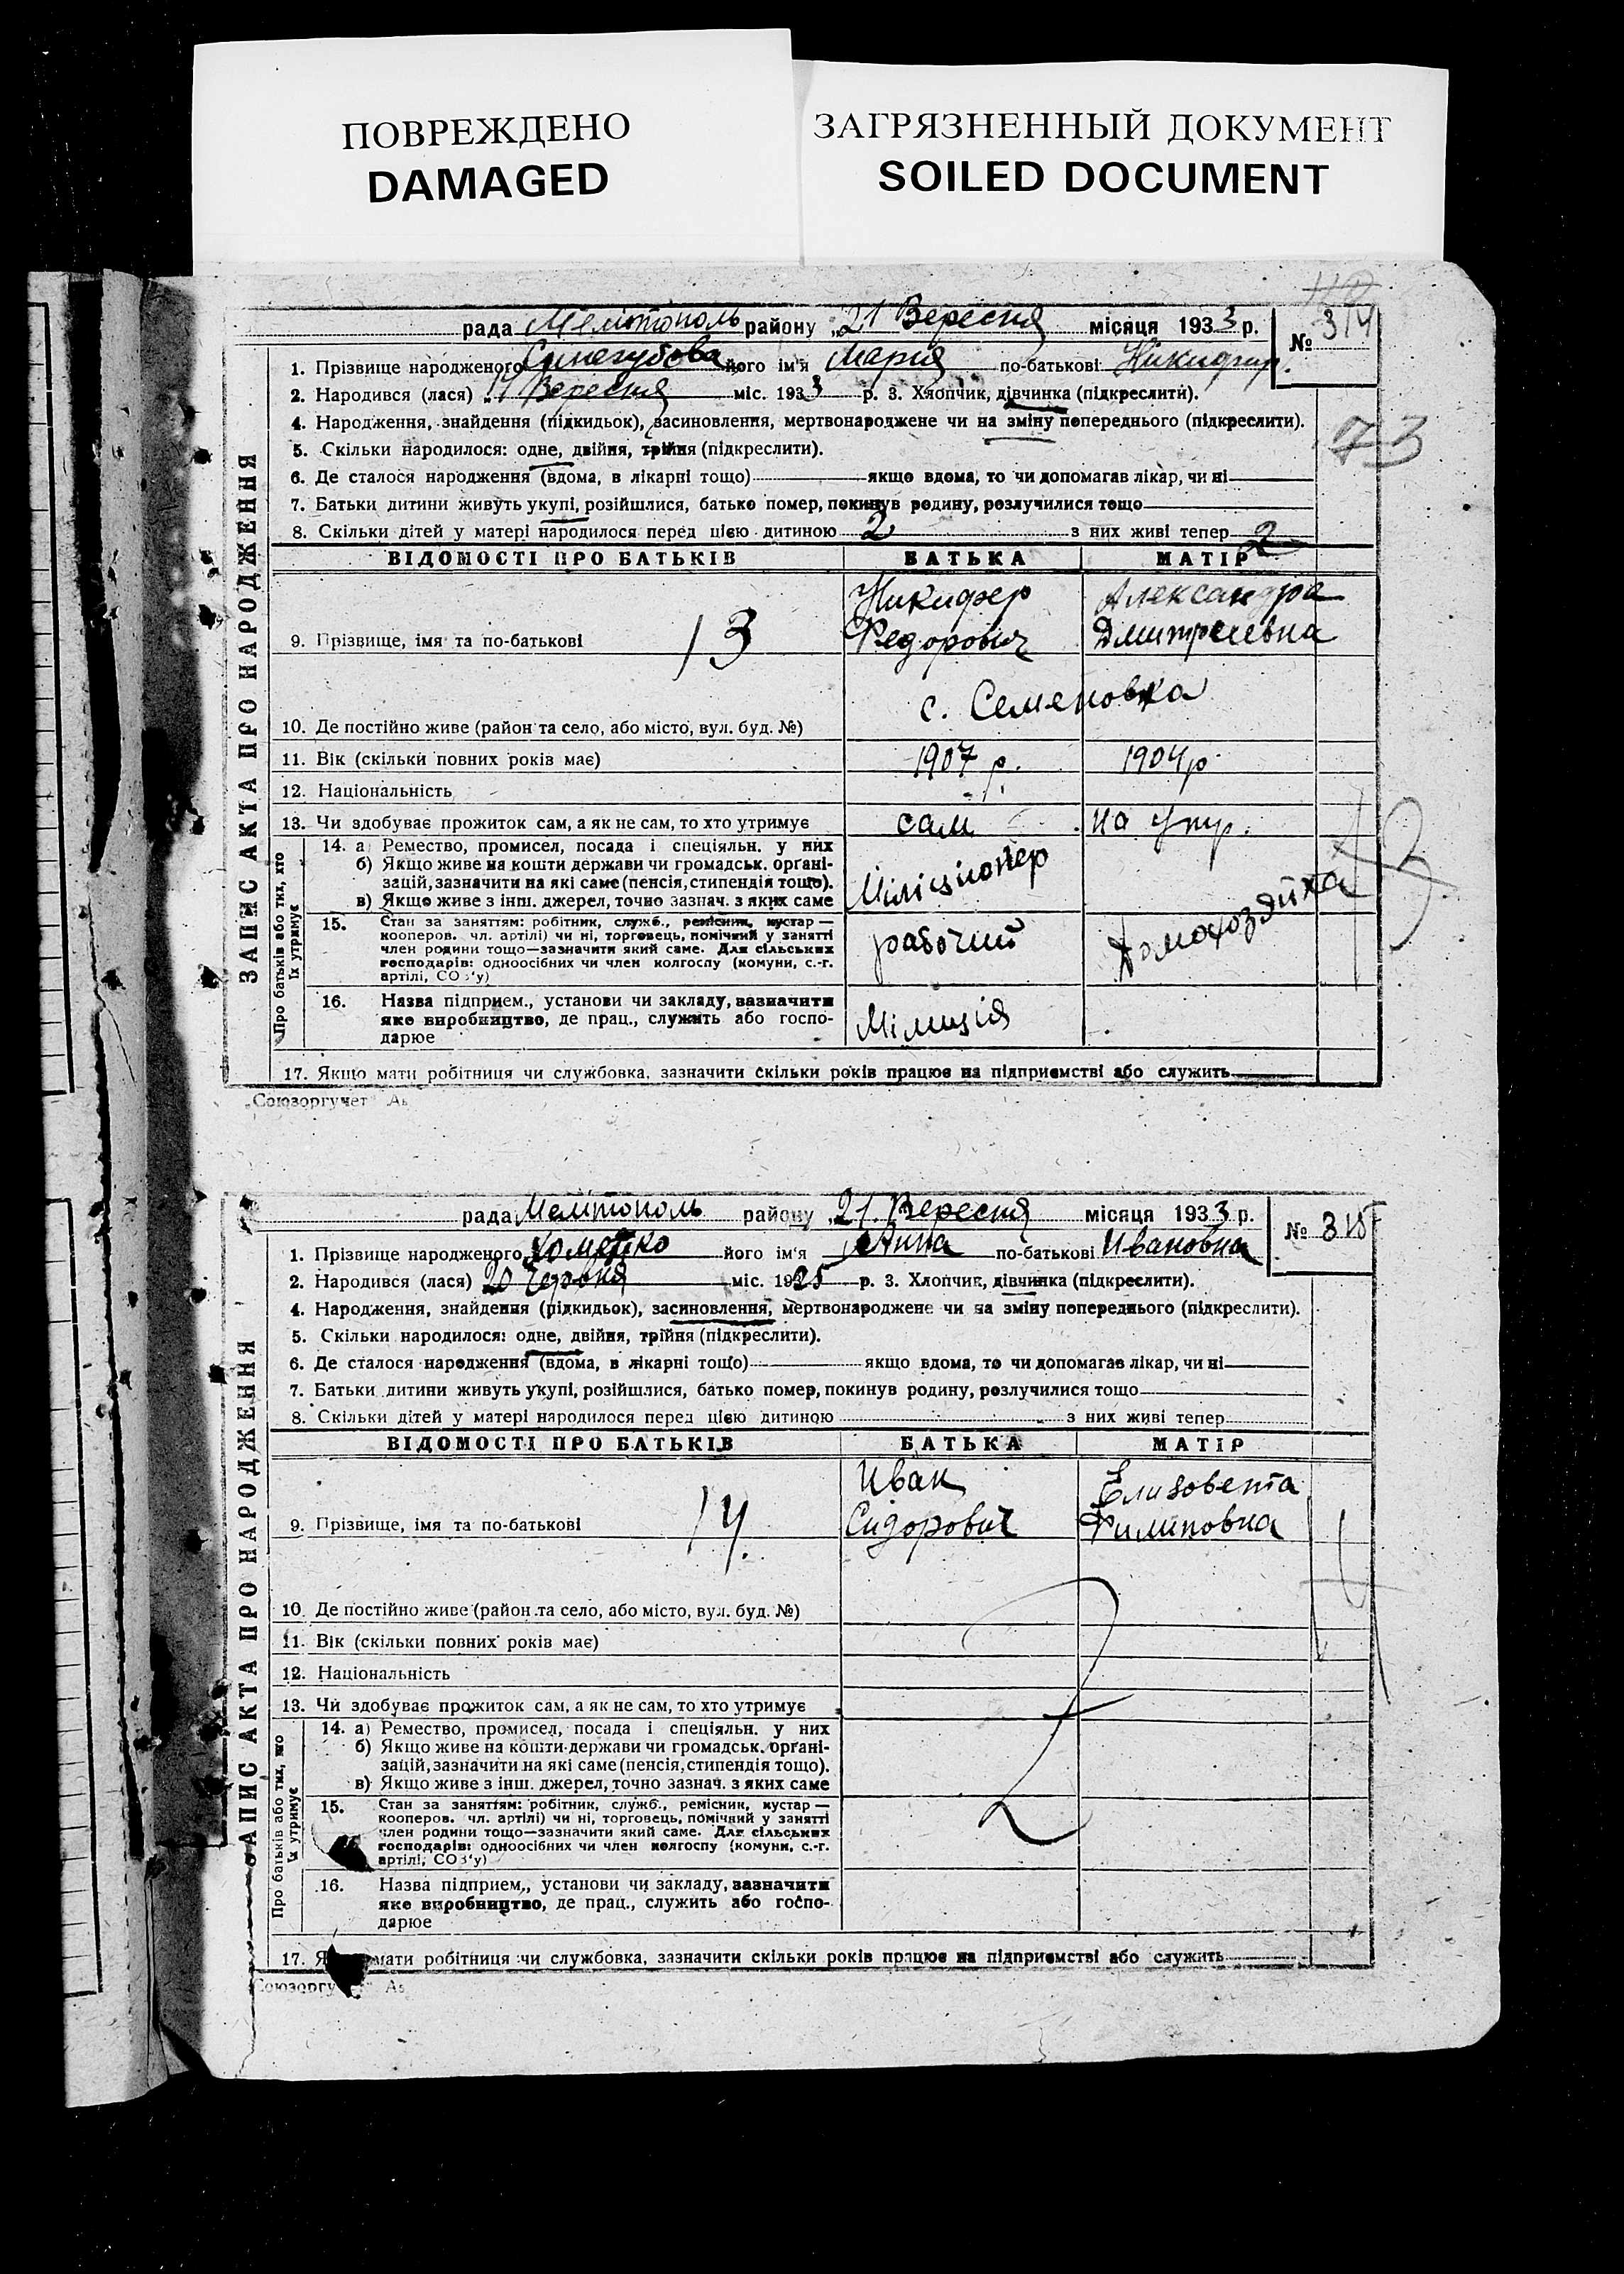 ПОВРЕЖДЕНО
DAMAGED
ЗАГРЯЗНЕННЫЙ ДОКУМЕНТ
SOILED DOCUMENT
рада Мелітополь району „21 Вересня місяця 1933 р. № 314
1. Прізвище народженого його ім'я Мария по-батькові Никифир.
2. Народився (лася) Вересня міс. 1933 р. 3. Хлопчик, дівчинка (підкреслити).
73
4. Народження, знайдення (підкидьок), засиновлення, мертвонароджене чи на зміну попереднього (підкреслити).
5. Скільки народилося: одне, двійня, трійня (підкреслити).
6. Де сталося народження (вдома, в лікарні тощо) якщо вдома, то чи допомагав лікар, чи ні
7. Батьки дитини живуть укупі, розійшлися, батько помер, покинув родину, розлучилися тощо
8. Скільки дітей у матері народилося перед цією дитиною 2 з них живі тепер 2
ЗАПИС АКТА ПРО НАРОДЖЕННЯ
ВІДОМОСТІ ПРО БАТЬКІВ БАТЬКА МАТІР
Никифер Александра
9. Прізвище, імя та по-батькові 13 Федорович Дмитриевна
с. Семеновка
10. Де постійно живе (район та село, або місто, вул. буд. №)
11. Вік (скільки повних років має) 1907 р. 1904 р
12. Національність
13. Чи здобуває прожиток сам, а як не сам, то хто утримує сам на утр.
Про батьків або тих, хто їх утримує
14. а) Ремество, промисел, посада і спеціяльн. у них
б) Якщо живе на кошти держави чи громадськ. органі-
зацій, зазначити на які саме (пенсія, стипендія тощо). Міліционер
в) Якщо живе з інш. джерел, точно зазнач. з яких саме
15. Стан за заняттям: робітник, служб., ремісник, кустар —
кооперов. чл. артілі) чи ні, торговець, помічний у занятті
член родини тощо—зазначити який саме. Для сільських рабочий Домохозяйка
господарів: одноосібних чи член колгоспу (комуни, с.-г.
артілі, СОЗ'у)
16. Назва підприєм., установи чи закладу, зазначити
яке виробництво, де прац., служить або госпо- Міліція
дарює
17. Якщо мати робітниця чи службовка, зазначити скільки років працює на підприємстві або служить
„Союзоргучет
рада Мелітополь району „21. Вересня місяця 1933 р. № 315
1. Прізвище народженого Хоменко його ім'я Анна по-батькові Ивановна
2. Народився (лася) 20 Червня міс. 1925 р. 3. Хлопчик, дівчинка (підкреслити).
4. Народження, знайдення (підкидьок), засиновлення, мертвонароджене чи на зміну попереднього (підкреслити).
5. Скільки народилося: одне, двійня, трійня (підкреслити).
6. Де сталося народження (вдома, в лікарні тощо) якщо вдома, то чи допомагав лікар, чи ні
7. Батьки дитини живуть укупі, розійшлися, батько помер, покинув родину, розлучилися тощо
8. Скільки дітей у матері народилося перед цією дитиною з них живі тепер
ЗАПИС АКТА ПРО НАРОДЖЕННЯ
ВІДОМОСТІ ПРО БАТЬКІВ БАТЬКА МАТІР
Иван Елизовента
9. Прізвище, імя та по-батькові 14. Сидорович Филиповна
10. Де постійно живе (район та село, або місто, вул. буд. №)
11. Вік (скільки повних років має)
12. Національність
13. Чи здобуває прожиток сам, а як не сам, то хто утримує
Про батьків або тих, що їх утримує
14. а) Ремество, промисел, посада і спеціяльн. у них
б) Якщо живе на кошти держави чи громадськ. органі-
зацій, зазначити на які саме (пенсія, стипендія тощо).
в) Якщо живе з інш. джерел, точно зазнач. з яких саме
15. Стан за заняттям: робітник, служб., ремісник, кустар —
кооперов. чл. артілі) чи ні, торговець, помічний у занятті
член родини тощо—зазначити який саме. Для сільських
господарів: одноосібних чи член колгоспу (комуни, с.-г.
артілі, СОЗ'у)
16. Назва підприєм., установи чи закладу, зазначити
яке виробництво, де прац., служить або госпо-
дарює
17. мати робітниця чи службовка, зазначити скільки років працює на підприємстві або служить